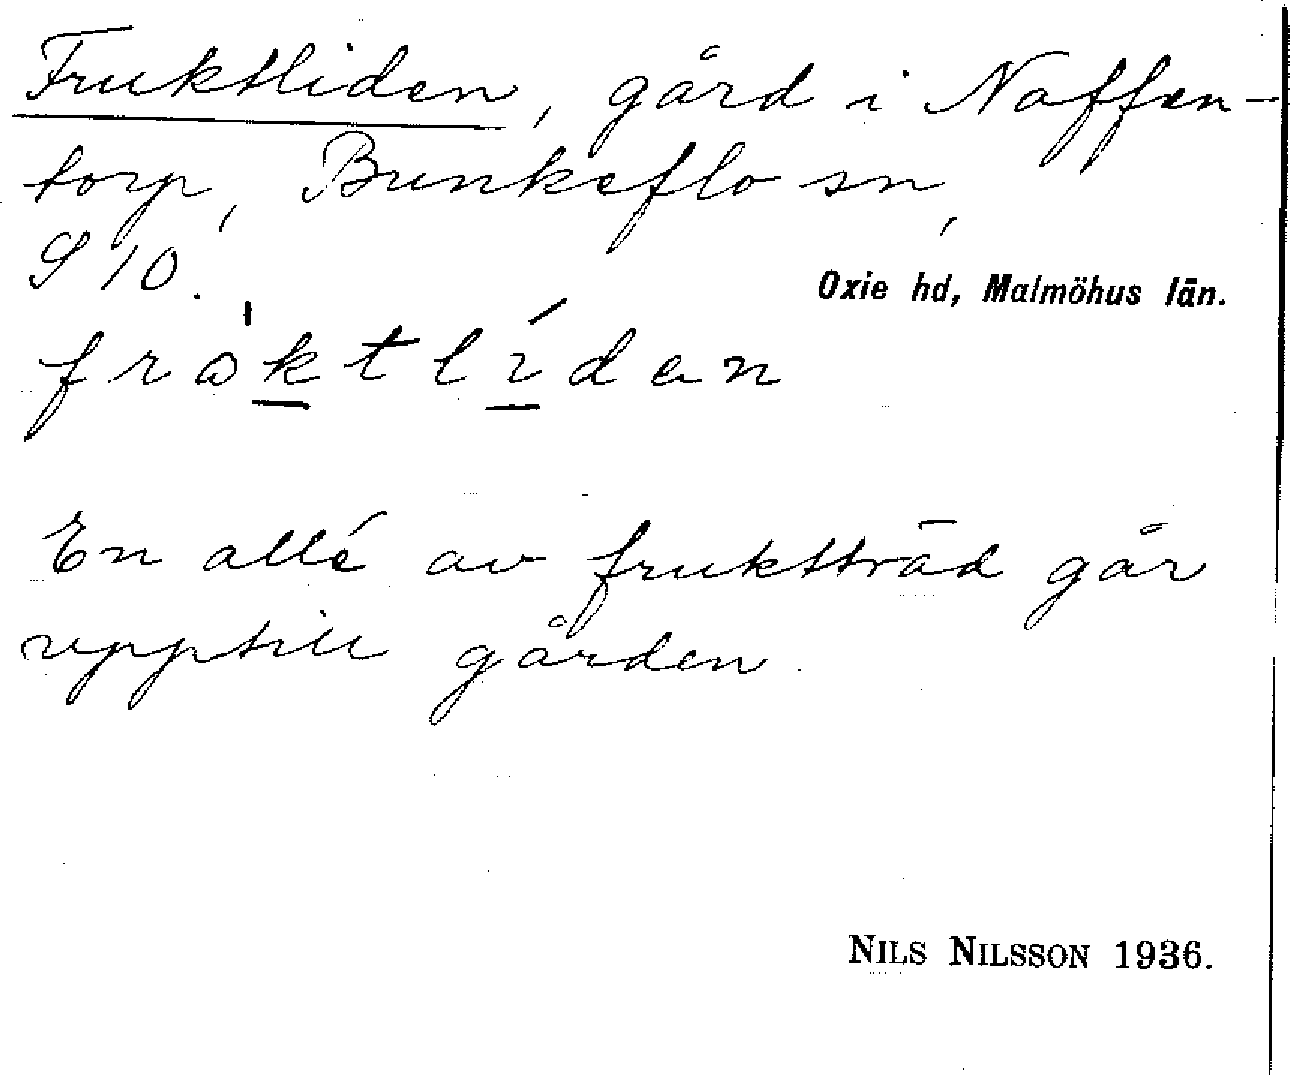 Fruktliden, gård i Naffen-
torp, Bunkeflo sn,
S 10.
Oxie hd, Malmöhus län.
fròktlíden
En allé av fruktträd går
upptill gården.
NILS NILSSON 1936.